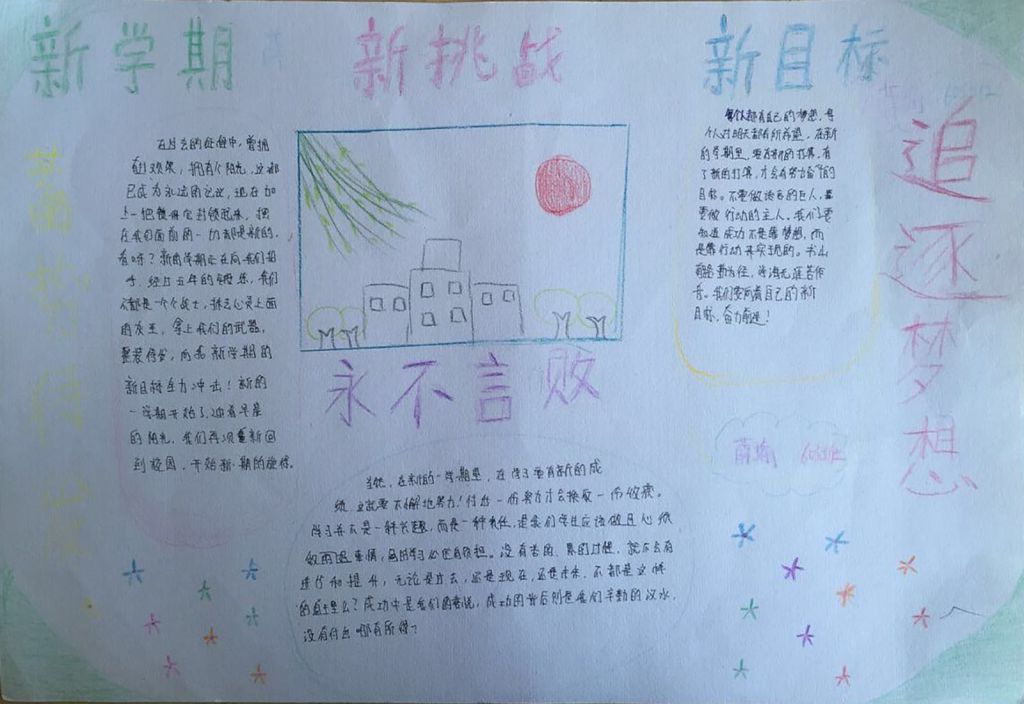 新学期
新挑战
新目标
在过去的征程中，曾拥
有过欢笑，拥有个阳光，这都
已成为永远的记忆，现在加
上一把锁将它封锁起来，摆
在我们面前的一切都是新的。
有味？新的学期正在向我们招
手，经过五年的锻炼，我们
都是一个个战士，抹去心灵上面
的灰尘，拿上我们的武器，
重装待发，向着新学期的
新目标全力冲击！新的
一学期开始了，迎着早晨
的阳光，我们再次重新回
到校园，开始新一期的旅行。
永不言败
当然，在新的一学期里，在学习要有新的成
绩，这就要不懈地努力！付出一份努力才会换取一份收获。
学习并不是一种兴趣，而是一种责任，是我们学生应该做且必须
做的事情，没有苦的、累的过程，就不会有
进行和提升，无论是过去，还是现在，还是未来，不都是这样
的真理么？成功中是我们的喜悦，成功的背后则是我们辛勤的汗水，
没有付出哪有所得？
每个人都有自己的梦想，每
个人对明天都有所希望，在新
的学期里，要有新的打算，有
了新的打算，才会有努力奋斗的
目标。不要做语言的巨人，要
要做行动的主人。我们要
知道成功不是靠梦想，而
是靠行动来实现的。书山
有路勤为径，学海无涯苦作
舟。我们要向着自己的新
目标，奋力前进！
追逐梦想
薛瑜